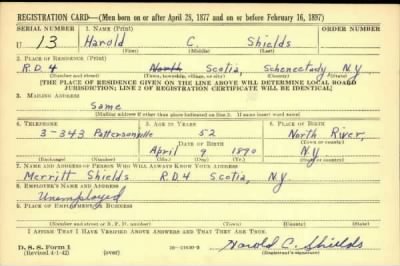 REGISTRATION CARD—(Men born on or after April 28, 1877 and on or before February 16, 1897)
SERIAL NUMBER 1. NAME (Print) ORDER NUMBER
U 13 Harold C. Shields
(First) (Middle) (Last)
2. PLACE OF RESIDENCE (Print)
R.D.4 North Scotia, Schenectady N.Y
(Number and street) (Town, township, village, or city) (County) (State)
[THE PLACE OF RESIDENCE GIVEN ON THE LINE ABOVE WILL DETERMINE LOCAL BOARD
JURISDICTION; LINE 2 OF REGISTRATION CERTIFICATE WILL BE IDENTICAL]
3. MAILING ADDRESS
Same
[Mailing address if other than place indicated on line 2. If same insert word same]
4. TELEPHONE 5. AGE IN YEARS 6. PLACE OF BIRTH
3-343 Pattersonville 52 North River,
DATE OF BIRTH (Town or county)
April 9 1890 N.Y
(Exchange) (Number) (Mo.) (Day) (Yr.) (State or country)
7. NAME AND ADDRESS OF PERSON WHO WILL ALWAYS KNOW YOUR ADDRESS
Merritt Shields R.D.4 Scotia, N.Y.
8. EMPLOYER'S NAME AND ADDRESS
Unemployed
9. PLACE OF EMPLOYMENT OR BUSINESS
(Number and street or R. F. D. number) (Town) (County) (State)
I AFFIRM THAT I HAVE VERIFIED ABOVE ANSWERS AND THAT THEY ARE TRUE.
D. S. S. Form 1
(Revised 4-1-42) (over) Harold C. Shields
(Registrant's signature)